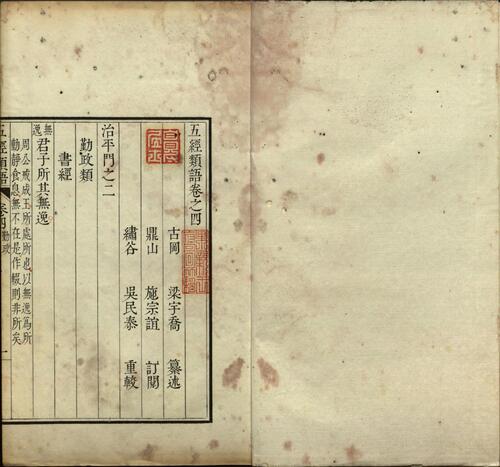 五經類語卷之四
古岡 梁宇喬 纂述
鼎山 施宗誼 訂閱
繡谷 吳民泰 重較
治平門之二
勤政類
書經
無逸 君子所其無逸
周公戒成王所處所也以無逸為所
動靜食息無不在是作輟則非所矣
五經類語 卷四 勤政 一